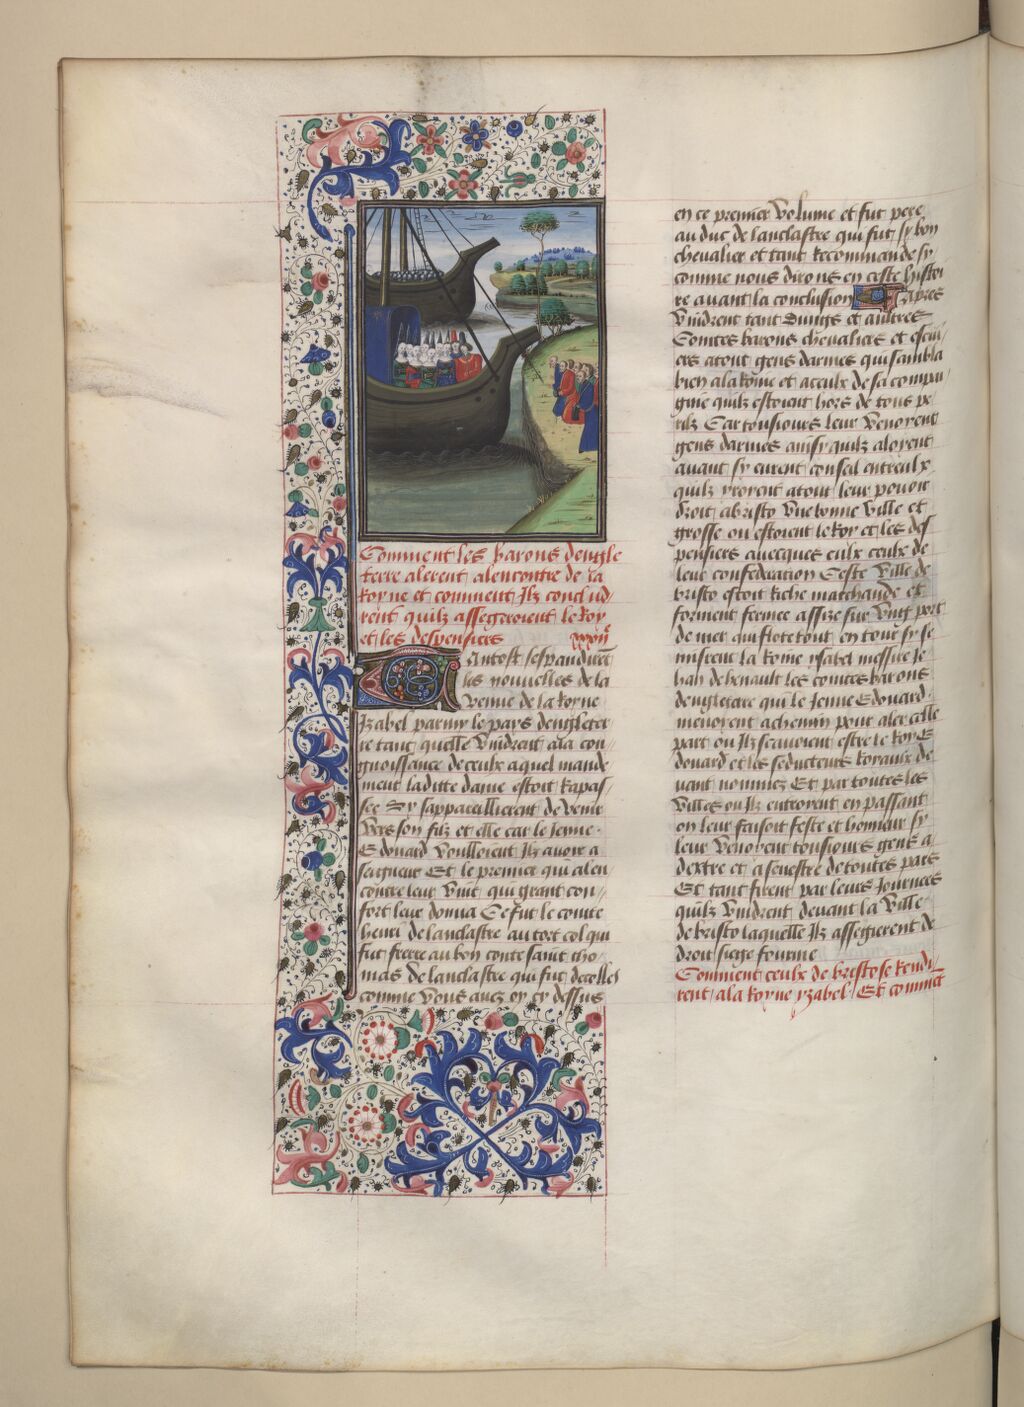 Comment les barons dengle
terre alerent alencontre de la
Royne et comment Ilz conclud
rent quilz assegeroient le Roy
et les despensiers
Antost sespandirent
les nouvelles de la
venue de la royne
Izabel parmy le pays dengleter
re tant quelle vindrent a la con
gnoissance de ceulx a quel mande
ment laditte dame estoit Rapas
see Sy sappareillierent de venir
vers son filz et elle car le Jenne
Edouard voulloient Ilz avoir a
seigneur Et le premier qui alen
contre leur vint qui grant con
fort leur donna Ce fut le conte
henri de lanclastre au tort col qui
fut frere au bon conte saint tho
mas de lanclastre qui fut decolles
comme vous avez oy cy dessus
en ce premier volume et fut pere
au duc de lanclastre qui fut sy bon
chevalier et tant Recommande sy
comme nous dirons en ceste histoi
re avant la conclusion Apres
vindrent tant dungs et aultres
Contes barons chevaliers et escui
ers atout gens darmes qui sambla
bien a la Roine et a ceulx de sa compai
gnie quilz estoient hors de tous pe
rilz Car tousiours leur venoyent
gens darmes ainsy quilz aloyent
avant sy eurent conseil entreulx
quilz yroyent atout leur pouoir
droit a bristo une bonne ville et
grosse ou estoient le Roy et les des
pensiers avecques eulx ceulx de
leur confederation Ceste ville de
bristo estoit Riche marchande et
forment fermee assize sur ung port
de mer qui flote tout en tour sy se
mistrent la Roine ysabel messire Je
han de henault les contes barons
dengletere qui le Jenne Edouard
menoyent a chemin pour aler celle
part ou Ilz scavoient estre le Roy E
douard et les seducteurs Royaux de
vant nommez Et par toutes les
villes ou Ilz entroyent en passant
on leur faisoit feste et honneur sy
leur venoyent tousiours gens a
dextre et a senestre de toutes pars
Et tant firent par leurs Journees
quilz vindrent devant la ville
de bristo laquelle Ilz assegierent de
droit siege fourme
Comment ceulx de bristo se Rendi
rent a la Royne yzabel Et comment